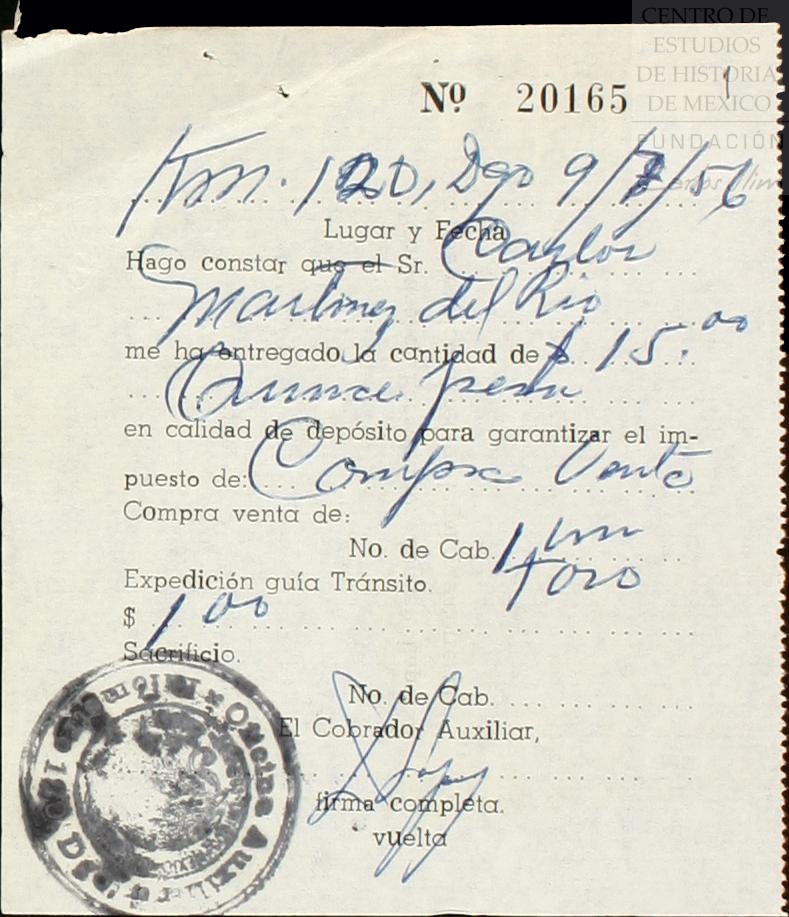 CENTRO DE
ESTUDIOS
DE HISTORIA
DE MEXICO
FUNDACIÓN
Carlos Slim
Nº 20165
Km. 120, Dgo 9/7/56
Lugar y Fecha
Hago constar que el Sr. Carlos
Martinez del Rio
me ha entregado la cantidad de $ 15.00
Quince pesos
en calidad de depósito para garantizar el im-
puesto de: Compra Venta
Compra venta de:
No. de Cab. 1 un
toro
Expedición guía Tránsito.
$ 1 00
Sacrificio.
No. de Cab.
El Cobrador Auxiliar,
firma completa.
vuelta
Oficina Auxiliar